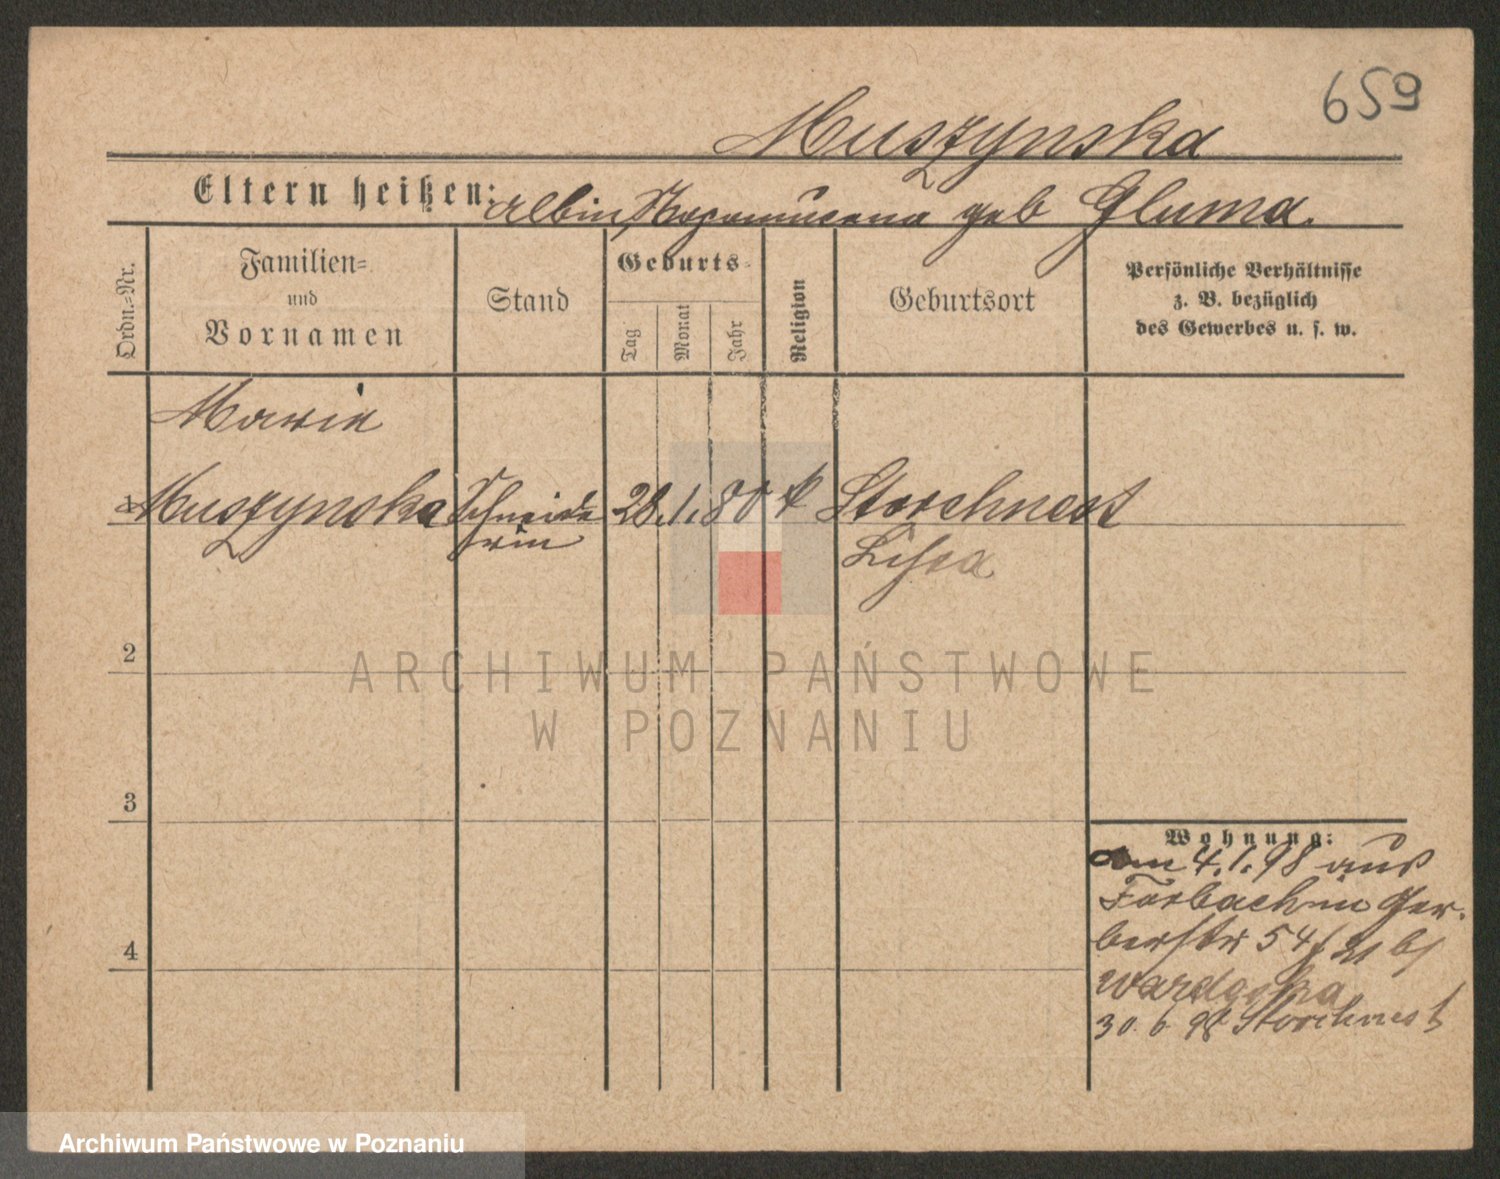 659
Muszynska
Eltern heißen: Albin, Nepomucena geb Gluma.
Ordn.=Nr.
Familien=
und
Vornamen
Stand
Geburts=
Tag
Monat
Jahr
Religion
Geburtsort
Persönliche Verhältnisse
z. B. bezüglich
des Gewerbes u. s. w.
Marie
1 Muszynska Schneide 28. 1. 80 k Storchnest
rin Lissa
2
ARCHIWUM PAŃSTWOWE
W POZNANIU
3
Wohnung:
am 4. 1. 98 aus
Forbach in Ger.
berstr 54 b/
30. 6. 98 Storchnest
4
Archiwum Państwowe w Poznaniu